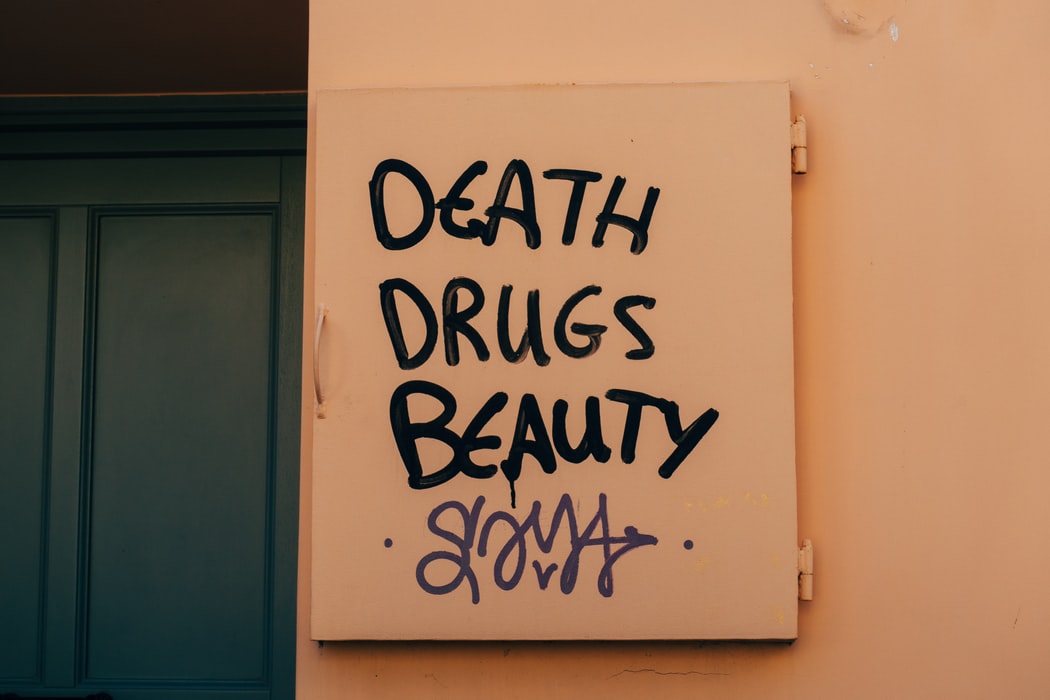 DEATH
DRUGS
BEAUTY